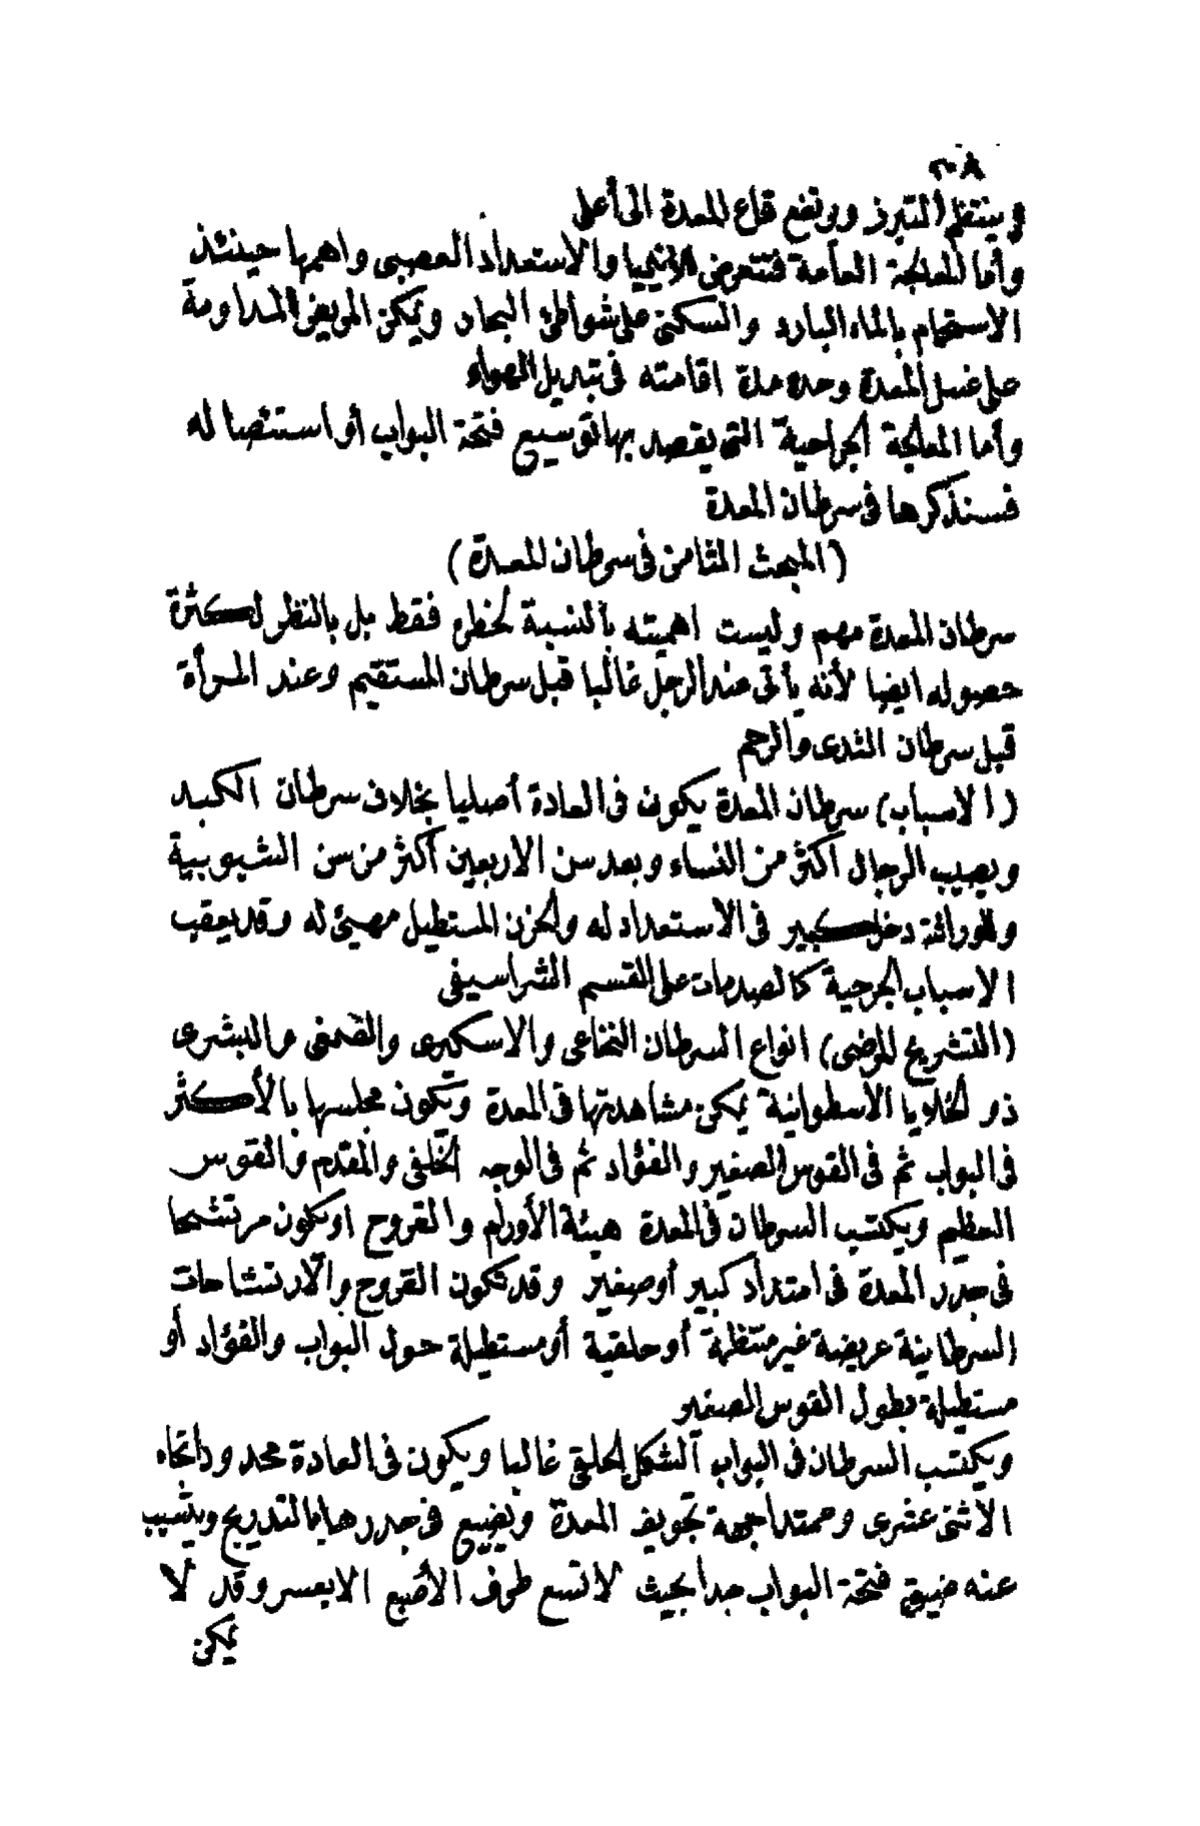 ٢٠٨
وينتظم التبرز ويرتفع قاع المعدة الى أعلى
وأما المعالجة العامة فتتعرض للانيميا والاستعداد العصبى واهمها حينئذ
الاستحمام بالماء البارد والسكنى على شواطئ البحار ويمكن المريض المداومة
على غسل المعدة وحده مدة اقامته فى تبديل الهواء
وأما المعالجة الجراحية التى يقصد بها توسيع فتحة البواب أو استئصاله
فسنذكرها فى سرطان المعدة
(المبحث الثامن فى سرطان المعدة)
سرطان المعدة مهم وليست اهميته بالنسبة لخطره فقط بل بالنظر لكثرة
حصوله ايضا لأنه يأتى عند الرجل غالبا قبل سرطان المستقيم وعند المرأة
قبل سرطان الثدى والرحم
(الاسباب) سرطان المعدة يكون فى العادة أصليا بخلاف سرطان الكبد
ويصيب الرجال أكثر من النساء وبعد سن الاربعين أكثر من سن الشبوبية
وللوراثة دخل كبير فى الاستعداد له والحزن المستطيل مهيئ له وقد يعقب
الاسباب الجرحية كالصدمات على القسم الشراسيفى
(التشريح المرضى) انواع السرطان النخاعى والاسكيرى والصمغى والبشرى
ذو الخلايا الاسطوانية يمكن مشاهدتها فى المعدة وتكون مجلسها بالأكثر
فى البواب ثم فى القوس الصغير والفؤاد ثم فى الوجه الخلفى والمقدم والقوس
العظيم ويكتسب السرطان فى المعدة هيئة الأورام والقروح او يكون مرتشحا
فى جدر المعدة فى امتداد كبير أو صغير وقد تكون القروح والارتشاحات
السرطانية عريضة غير منتظمة أو حلقية أو مستطيلة حول البواب والفؤاد أو
مستطيلة بطول القوس الصغير
ويكتسب السرطان فى البواب الشكل الحلقى غالبا ويكون فى العادة محدودا تجاه
الاثنى عشرى وممتدا جهة تجويف المعدة ويضيع فى جدرها بالتدريج ويتسبب
عنه ضيق فتحة البواب جدا بحيث لا تسع طرف الأصبع الا بعسر وقد لا
يمكن